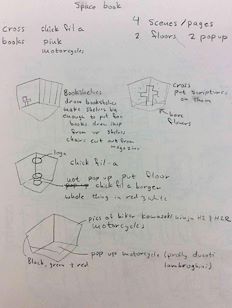 Space book
cross chick fil a
books pink
motorcycles
4 scenes/pages
2 floors, 2 pop up
Bookshelves
draw bookshelves
make shelves big
enough to put for
books draw ship
from ur shelves
chairs cut out from
magazine
cross
put scriptures
on them
bare
floors
logo
chick fil-a
not pop up put floor
chick fil a burger
whole thing in red & white
pics of biker kawasaki ninja H2 & H2R
motorcycles
pop up motorcycle (prolly ducati
lamborghini)
Black, green & red